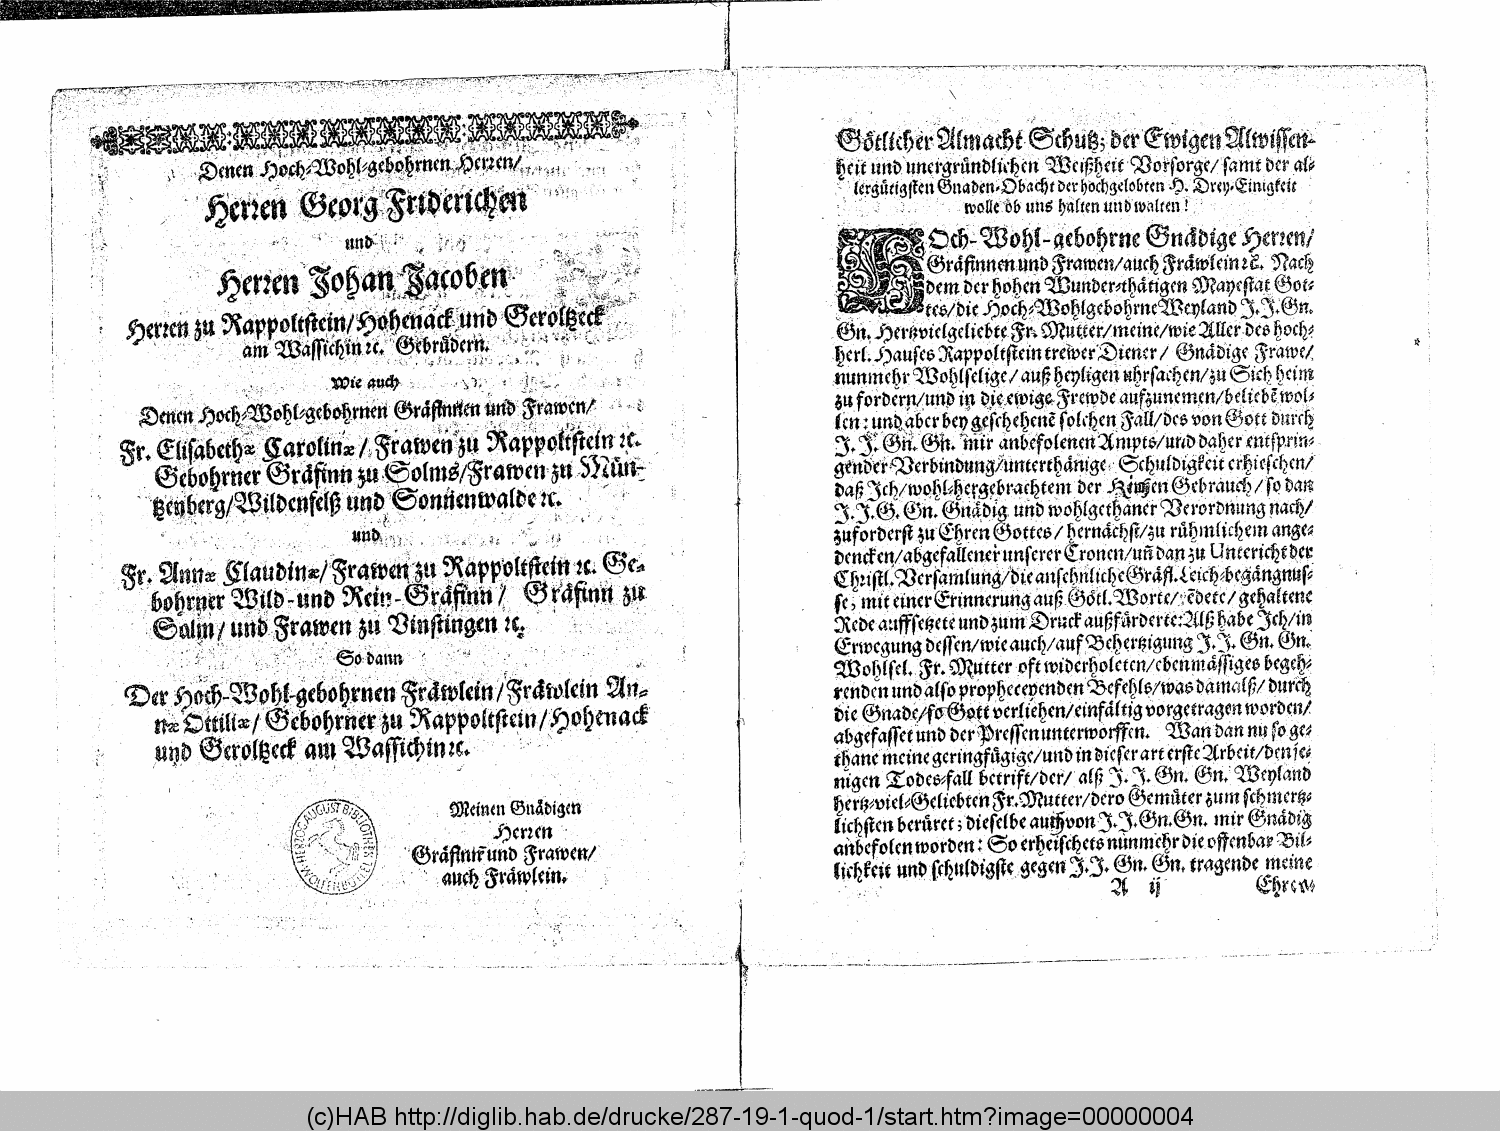 Denen Hoch-Wohl-gebohrnen Herren/
Herren Georg Friderichen
und
Herren Johan Jacoben
Herren zu Rappoltstein/Hohenack und Geroltzeck
am Wassichin ꝛc. Gebrüdern.
Wie auch
Denen Hoch-Wohl-gebohrnen Gräfinnen und Frawen/
Fr. Elisabethæ Carolinæ/ Frawen zu Rappoltstein ꝛc.
Gebohrner Gräfinn zu Solms/Frawen zu Mün-
tzenberg/Wildenfelß und Sonnenwalde ꝛc.
und
Fr. Annæ Claudinæ/Frawen zu Rappoltstein ꝛc. Ge-
bohrner Wild-und Rein-Gräfinn/ Gräfinn zu
Salm/ und Frawen zu Vinstingen ꝛc.
So dann
Der Hoch-Wohl-gebohrnen Fräwlein/Fräwlein An-
næ Ottiliæ/ Gebohrner zu Rappoltstein/Hohenack
und Geroltzeck am Wassichin ꝛc.
Meinen Gnädigen
Herren
Gräfinn̄ und Frawen/
auch Fräwlein.
HERZOG AUGUST BIBLIOTHEK WOLFENBÜTTEL
Götlicher Almacht Schutz; der Ewigen Alwissen-
heit und unergründlichen Weißheit Vorsorge/ samt der al-
lergütigsten Gnaden-Obacht der hochgelobten H. Drey-Einigkeit
wolle ob uns halten und walten!
HOch-Wohl-gebohrne Gnädige Herren/
Gräfinnen und Frawen/auch Fräwlein ꝛc. Nach
dem der hohen Wunder-thätigen Mayestat Got-
tes/die Hoch-Wohlgebohrne Weyland J. J. Gn.
Gn. Hertzvielgeliebte Fr. Mutter/meine/wie Aller des hoch-
herl. Hauses Rappoltstein trewer Diener/ Gnädige Frawe/
nunmehr Wohlselige/ auß heyligen uhrsachen/zu Sich heim
zu fordern/und in die ewige Frewde aufzunemen/beliebē wol-
len: und aber bey geschehenē solchen Fall/des von Gott durch
J. J. Gn. Gn. mir anbefolenen Ampts/und daher entsprin-
gender Verbindung/unterthänige Schuldigkeit erhieschen/
daß Jch/wohl-hergebrachtem der Hertzen Gebrauch/ so dan
J. J. G. Gn. Gnädig und wohlgethaner Verordnung nach/
zuforderst zu Ehren Gottes/ hernächst/zu rühmlichem ange-
dencken/abgefallener unserer Cronen/un̄ dan zu Untericht der
Christl. Versamlung/die ansehnliche Gräfl. Leich-begängnus-
se, mit einer Erinnerung auß Götl. Worte/ rēdete/ gehaltene
Rede auffsetzete und zum Druck außfärderte: Alß habe Jch/in
Erwegung dessen/wie auch/auf Behertzigung J. J. Gn. Gn.
Wohlsel. Fr. Mutter oft widerholeten/ebenmässiges begeh-
renden und also propheceyenden Befehls/was damalß/ durch
die Gnade/so Gott verliehen/einfältig vorgetragen worden/
abgefasset und der Pressen unterworffen. Wan dan nu so ge-
thane meine geringfügige/und in dieser art erste Arbeit/den je-
nigen Todes-fall betrift/der/ alß J. J. Gn. Gn. Weyland
hertz-viel-Geliebten Fr. Mutter/dero Gemüter zum schmertz-
lichsten berüret; dieselbe auch von J. J. Gn. Gn. mir Gnädig
anbefolen worden: So erheischets nunmehr die offenbar Bil-
lichkeit und schuldigste gegen J. J. Gn. Gn. tragende meine
A ij Ehren-
(c)HAB http://diglib.hab.de/drucke/287-19-1-quod-1/start.htm?image=00000004